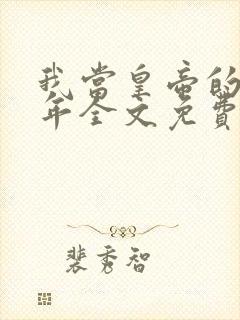 我當皇帝的
年全文免費
裴秀智